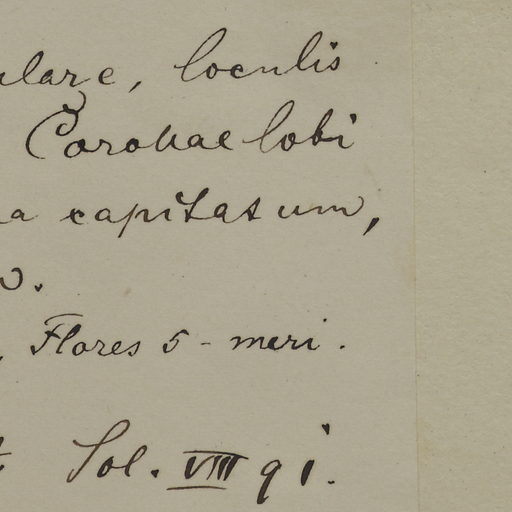 ulare, loculis
Corollae lobi
a capitatum,
Flores 5-meri.
Sol. VIII 91.